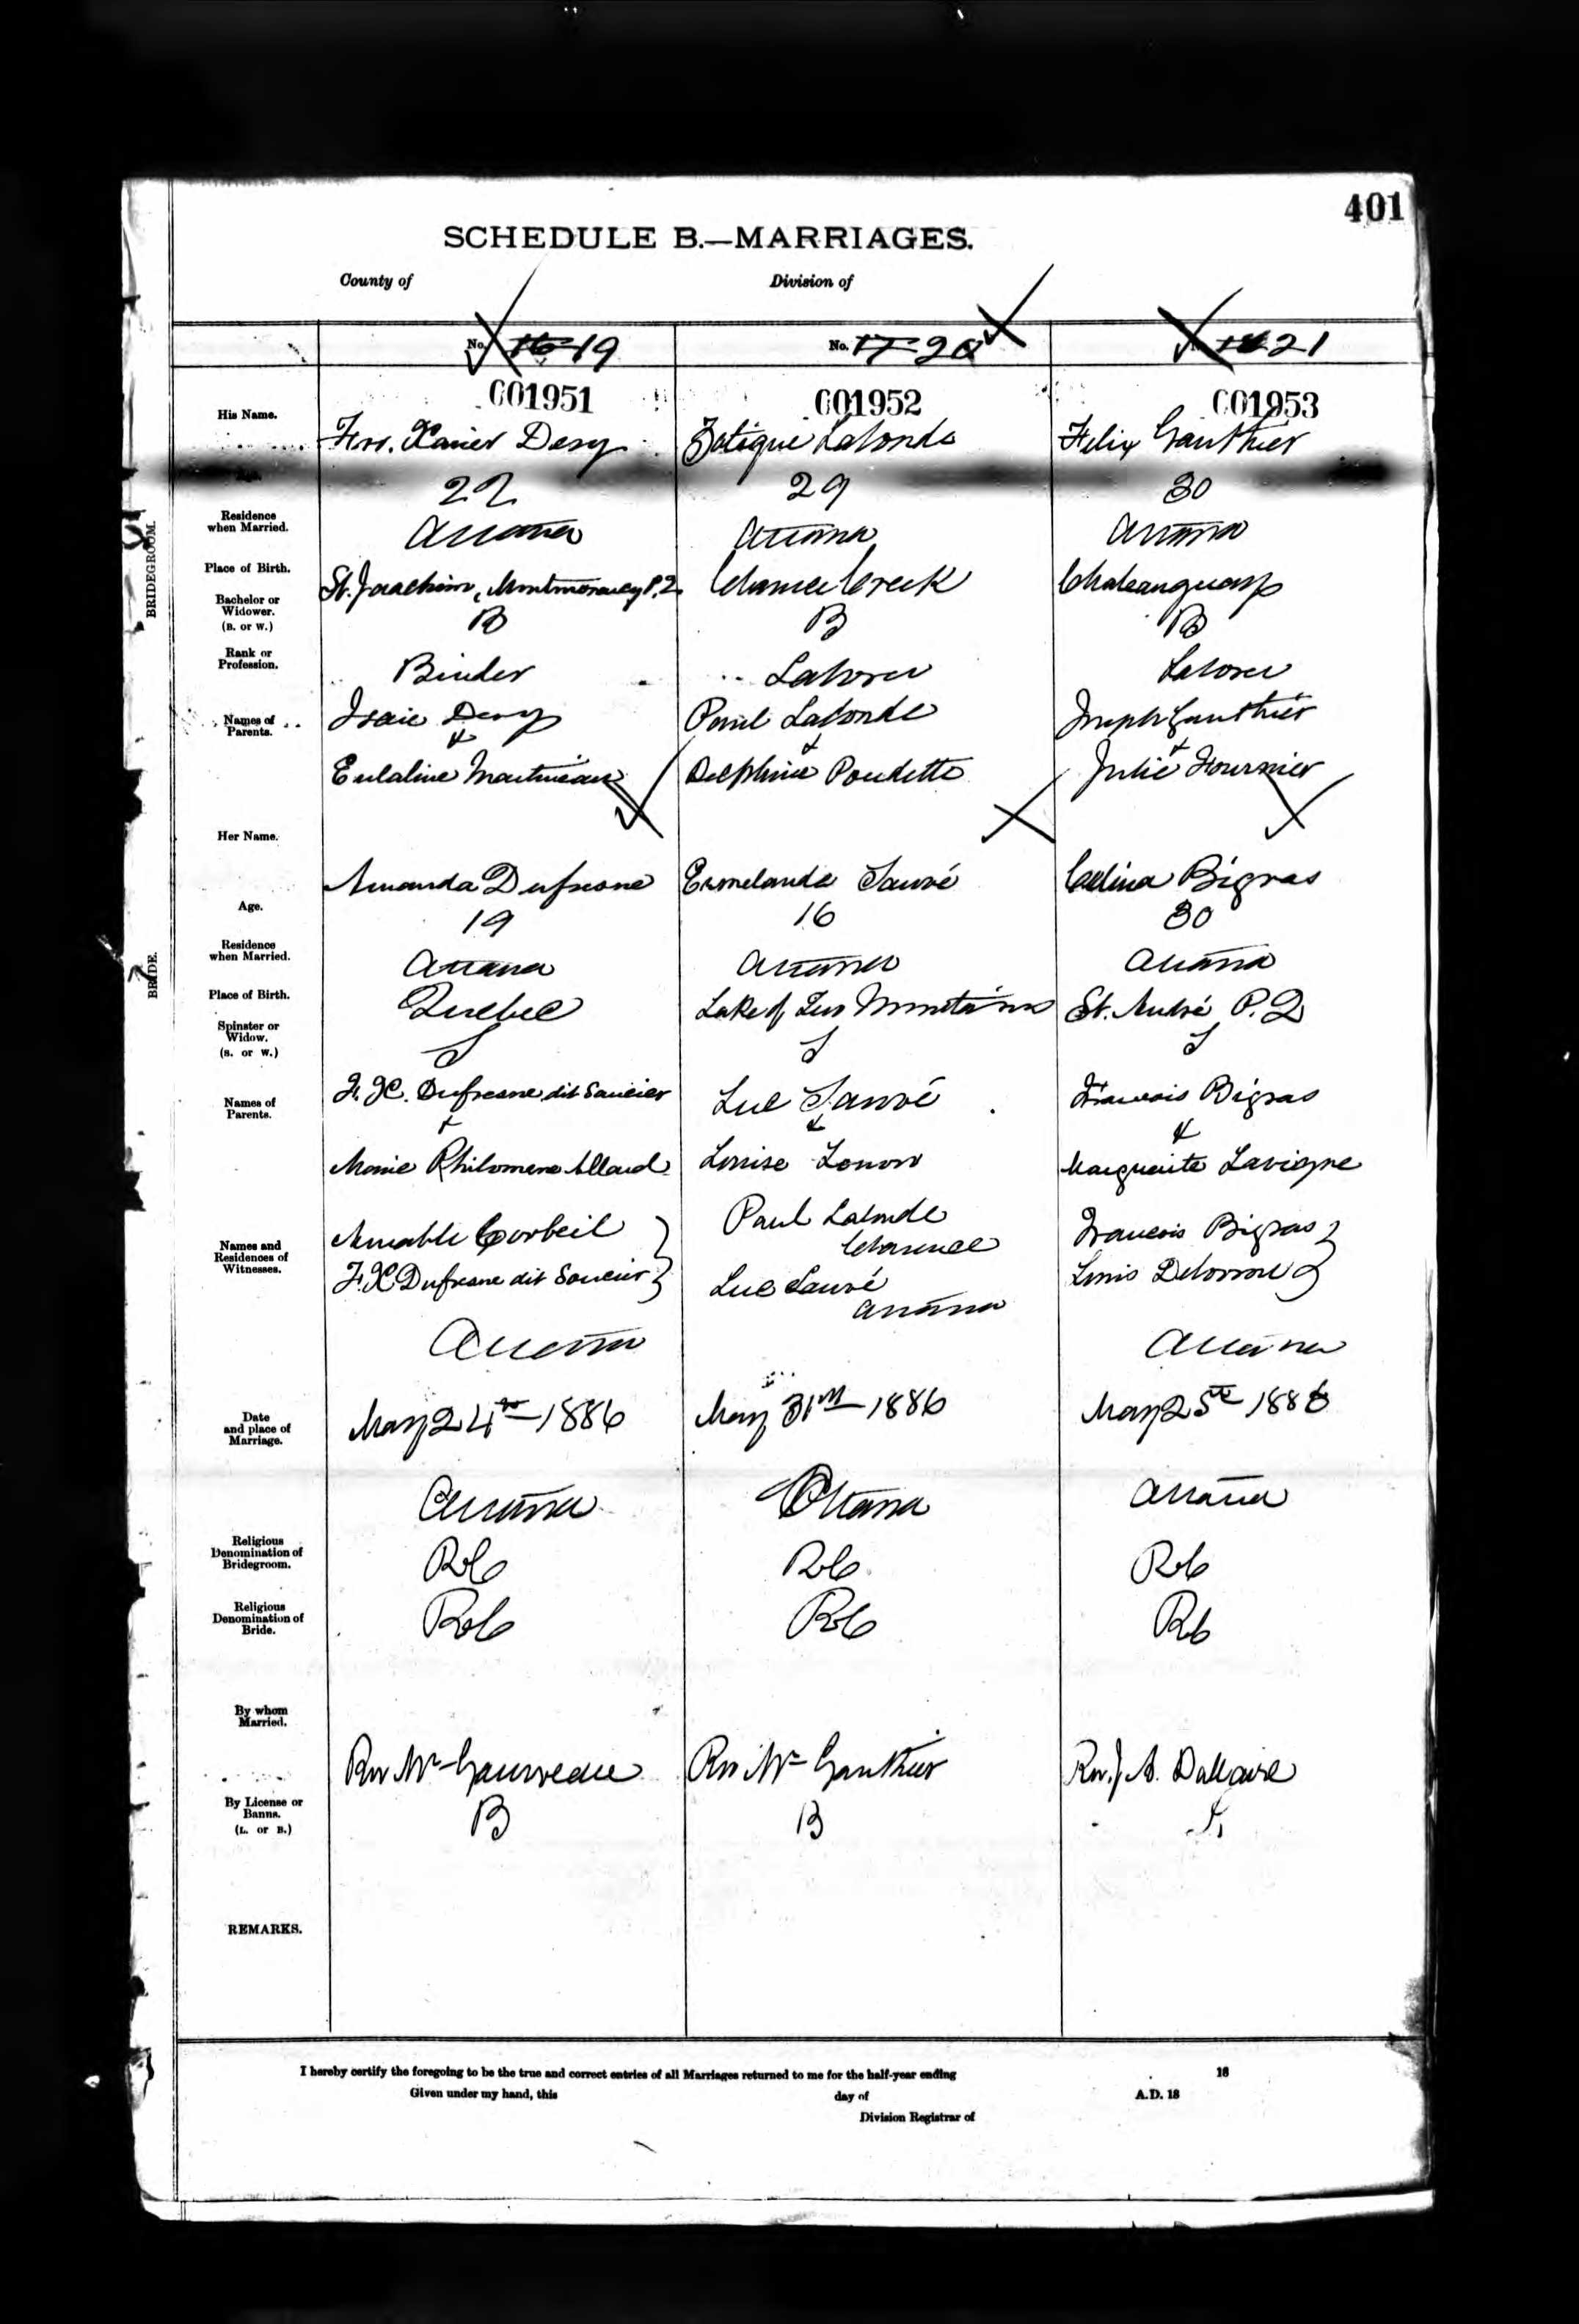 401
SCHEDULE B.—MARRIAGES.
County of Division of
No. 16 19 No. 17 20 18 21
001951 001952 001953
His Name. Frs. Xavier Dery Zotique Lalonde Felix Gauthier
22 29 30
Residence when Married. Ottawa Ottawa Ottawa
Place of Birth. St. Joachim, Montmorency P.Q. Creek Chateauguay
Bachelor or Widower. (B. or W.) B B B
Rank or Profession. Binder Laborer Laborer
Names of Parents. Isaie Dery Paul Lalonde Joseph Gauthier
& & &
Eulaline Martineau Delphine Poudette Julie Fournier
BRIDEGROOM.
Her Name. Amanda Dufresne Ermelande Sauvé Celina Bigras
Age. 19 16 30
Residence when Married. Ottawa Ottawa Ottawa
Place of Birth. Quebec Lake of Two Mountains St. André P.Q
Spinster or Widow. (S. or W.) S S S
Names of Parents. F. X. Dufresne dit Saucier Luc Sauvé Francois Bigras
& & &
Marie Philomene Allard Louise Marguerite Lavigne
BRIDE.
Names and Residences of Witnesses. Amable Corbeil Paul Lalonde Francois Bigras
Clarence
F. X. Dufresne dit Saucier Luc Sauvé Louis Delorme
Ottawa
Ottawa Ottawa
Date and place of Marriage. May 24th 1886 May 31st 1886 May 25th 1886
Ottawa Ottawa Ottawa
Religious Denomination of Bridegroom. RC RC RC
Religious Denomination of Bride. RC RC RC
By whom Married. Rev Mr Gauvreau Rev Mr Gauthier Rev. J. A. Dallaire
By License or Banns. (L. or B.) B B L
REMARKS.
I hereby certify the foregoing to be the true and correct entries of all Marriages returned to me for the half-year ending 18
Given under my hand, this day of A.D. 18
Division Registrar of